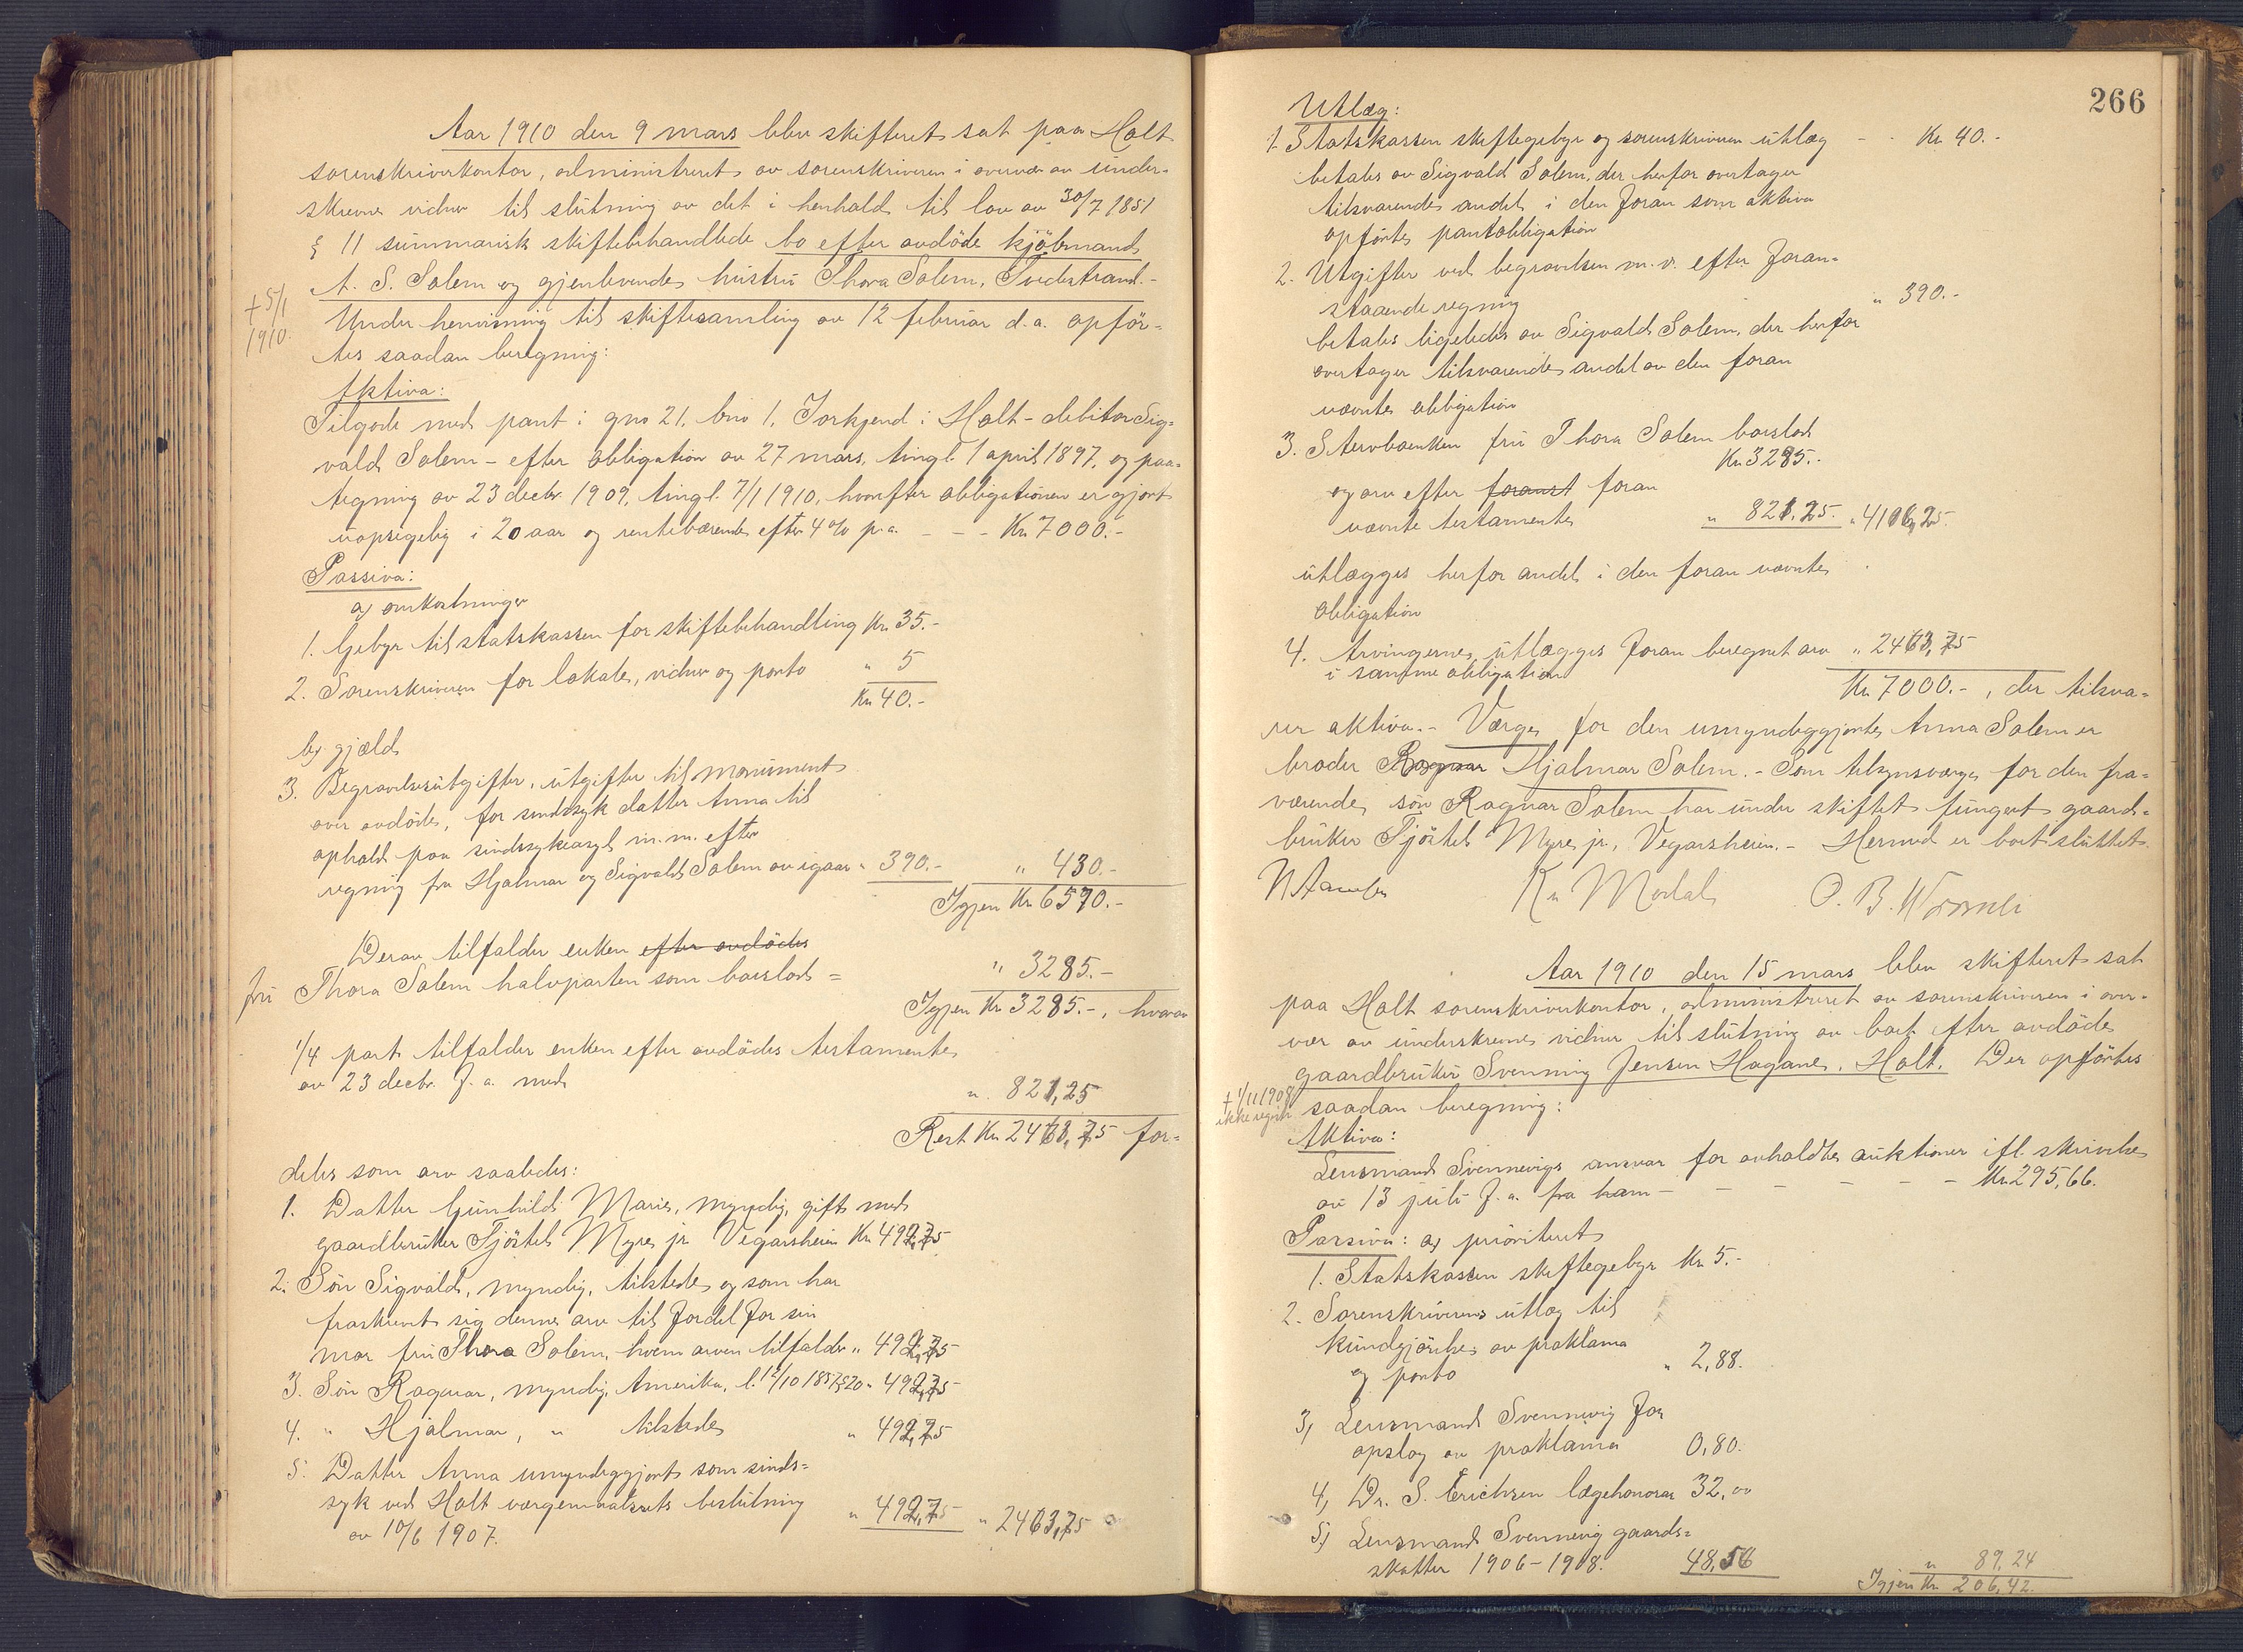 Aar 1910 den 9 mars blev skifteret sat paa Holt
sorenskriverkontor, administreret av sorenskriveren i overvær av under-
skrevne vidner til slutning av det i henhold til lov av 30/7 1851
§ 11 summarisk skiftebehandlede bo efter avdøde kjøbmand
A. S. Solem og gjenlevende hustru Thora Solem, Tvedestrand.-
+ 5/1
1910.
Under henvisning til skiftesamling av 12 februar d.a. opför-
tes saadan beregning:
Aktiva:
Tilgode med pant i gno 21, bno 1, Torkjend i Holt - debitor Sig-
vald Solem - efter obligation av 27 mars, tingl. 1 april 1897, og paa-
tegning av 23 decbr. 1909, tingl. 7/1 1910, hvorefter obligationen er gjort
uopsigelig i 20 aar og rentebærende efter 4% p.a. - - - Kr 7000.-
Passiva:
a) omkostninger
1. Gebyr til statskassen for skiftebehandling Kr. 35.-
2. Sorenskriveren for lokale, vidner og porto " 5
Kr 40.-
b) gjæld
3. Begravelsesutgifter, utgifter til monument
over avdöde, for sindssyk datter Anna til
ophold paa sindssykeasyl m.m. efter
regning fra Hjalmar og Sigvald Solem av igaar " 390.- " 430.-
Igjen Kr 6570.-
Derav tilfalder enken efter avdödes
fru Thora Solem halvparten som boeslod = " 3285.-
Igjen Kr 3285.-, hvorav
1/4 part tilfalder enken efter avdödes testamente
av 23 decbr. f.a. med " 821,25
Rest Kr 2463,75 for-
deles som arv saaledes:
1. Datter Gunhild Marie, myndig, gift med
gaardbruker Tjöstel Myre jr. Vegarsheien Kr 492,75
2. Sön Sigvald, myndig, tilstede og som har
fraskrevet sig denne arv til fordel for sin
mor fru Thora Solem, hvem arven tilfalder " 492,75
3. Sön Ragnar, myndig, Amerika, " 492,75
4. " Hjalmar, " tilstede " 492,75
5. Datter Anna umyndiggjort som sinds-
syk ved Holt værgemaalsrets beslutning
av 10/6 1907. " 492,75 " 2463,75
266
Utlæg:
1. Statskassen skiftegebyr og sorenskriveren utlæg - - Kr 40.-
betales av Sigvald Solem, der herfor overtager
tilsvarende andel i den foran som aktiva
opførte pantobligation
2. Utgifter ved begravelsen m.v. efter foran-
staaende regning " 390.-
betales ligeledes av Sigvald Solem, der herfor
overtager tilsvarende andel av den foran
nævnte obligation
3. Stervboenken fru Thora Solem boeslod
Kr. 3285.-
og arv efter foranst foran
nævnte testamente " 821,25. " 4106,25.
utlægges herfor andel i den foran nævnte
obligation
4. Arvingerne utlægges foran beregnet arv " 2463,75
i samme obligation
Kr. 7000.-, der tilsva-
rer aktiva.- Værge for den umyndiggjorte Anna Solem er
broder Ragnar Hjalmar Solem.- Som tilsynsværge for den fra-
værende sön Ragnar Solem har under skiftet fungert gaard-
bruker Tjöstel Myre jr., Vegarsheien.- Hermed er boet sluttet.
Kr Mordal O. B.
Aar 1910 den 15 mars blev skifteret sat
paa Holt sorenskriverkontor, administreret av sorenskriveren i over-
vær av underskrevne vidner til slutning av boet efter avdöde
gaardbruker Svenning Jensen Hagane, Holt. Der opförtes
+ 1/11 1908
ikke registr.
saadan beregning:
Aktiva:
Lensmand Svennevigs ansvar for avholdte auktioner ifl. skrivelse
av 13 juli f.a. fra ham - - - - - - Kr. 295,66.
Passiva: a) prioriteret
1. Statskassen skiftegebyr Kr 5.-
2. Sorenskriverens utlæg til
kundgjörelse av proklama
og porto " 2,88.
3) Lensmand Svennevig for
opslag av proklama 0,80.
4) Dr. S. Erichsen lægehonorar 32,00
5) Lensmand Svennevig gaards-
skatter 1906-1908. 48,56
" 89,24
Igjen Kr. 206,42.